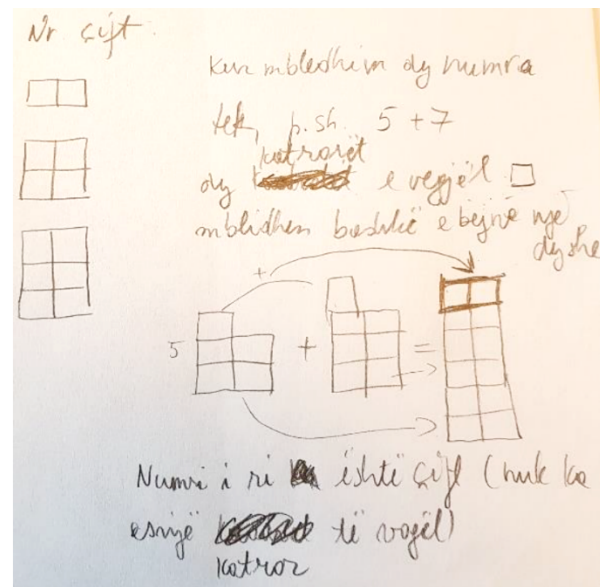 Nr çift
Kur mbledhim dy numra
tek, p.sh. 5 + 7
katrorët
dy e vegjël
mblidhen bashkë e bëjnë një
dyshe
+
5 + =
Numri i ri është çift (nuk ka
asnjë të vogël)
katror